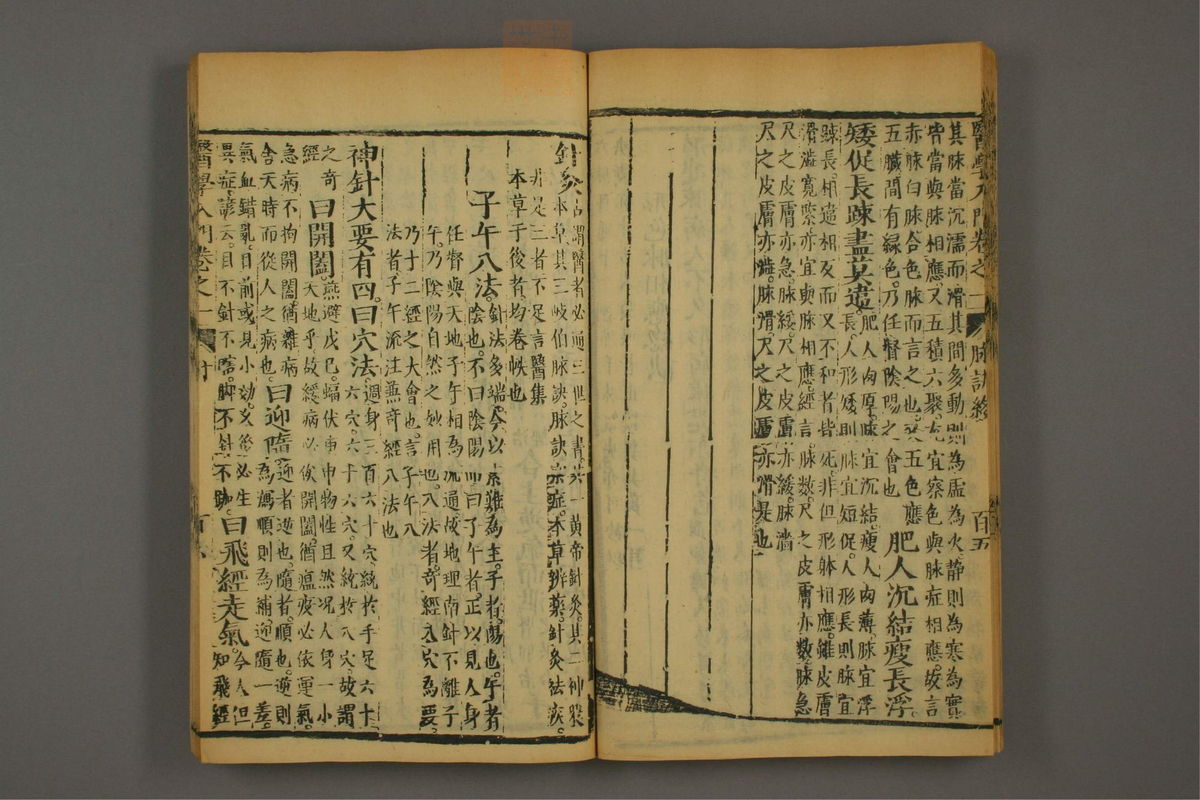 醫學入門卷之一 脉訣終 百五
其脉當沉濡而滑其間多動則為虛為火静則為寒為實
皆當與脉相應又五積六聚尤宜察色與脉症相應故言
赤脉白脉合色脉而言之也然五色應
五臟間有緑色乃任督陰陽之會也 肥人沉結瘦長浮
矮促長踈盡莫違 肥人肉厚脉宜沉結瘦人肉薄脉宜浮
長人形矮則脉宜短促人形長則脉宜
踈長相違相反而又不和者皆死非但形躰相應雖皮膚
滑澁寬緊亦宜與脉相應經言脉数尺之皮膚亦数脉急
尺之皮膚亦急脉緩尺之皮膚亦緩脉濇
尺之皮膚亦澁脉滑尺之皮膚亦滑是也
針灸 古謂醫者必通三世之書其一黄帝針灸其二神農
本草其三岐伯脉訣脉訣察症本草辨藥針灸祛疾
非是三者不足言醫集
本草于後者均卷帙也
子午八法 針法多端今以素難為主子者陽也午者
陰也不曰陰陽而曰子午者正以見人身
任督與天地子午相為流通故地理南針不離子
午乃陰陽自然之妙用也八法者奇經八穴為要
乃十二經之大會也言子午八
法者子午流注兼奇經八法也
神針大要有四曰穴法 週身三百六十穴統於手足六十
六穴六十六穴又統於八穴故謂
之奇 曰開闔 燕避戊巳蝠伏庚申物性且然况人身一小
經 天地乎故緩病必俟開闔猶瘟疫必依運氣
急病不拘開闔猶雜病
舍天時而從人之病也 曰迎隨 迎者逆也隨者順也逆則
為瀉順則為補迎隨一差
氣血錯亂目前或見小効久後必生
異症諺云目不針不瞎脚不針不跏 曰飛經走氣 今人但
知飛經
醫學入門卷之一